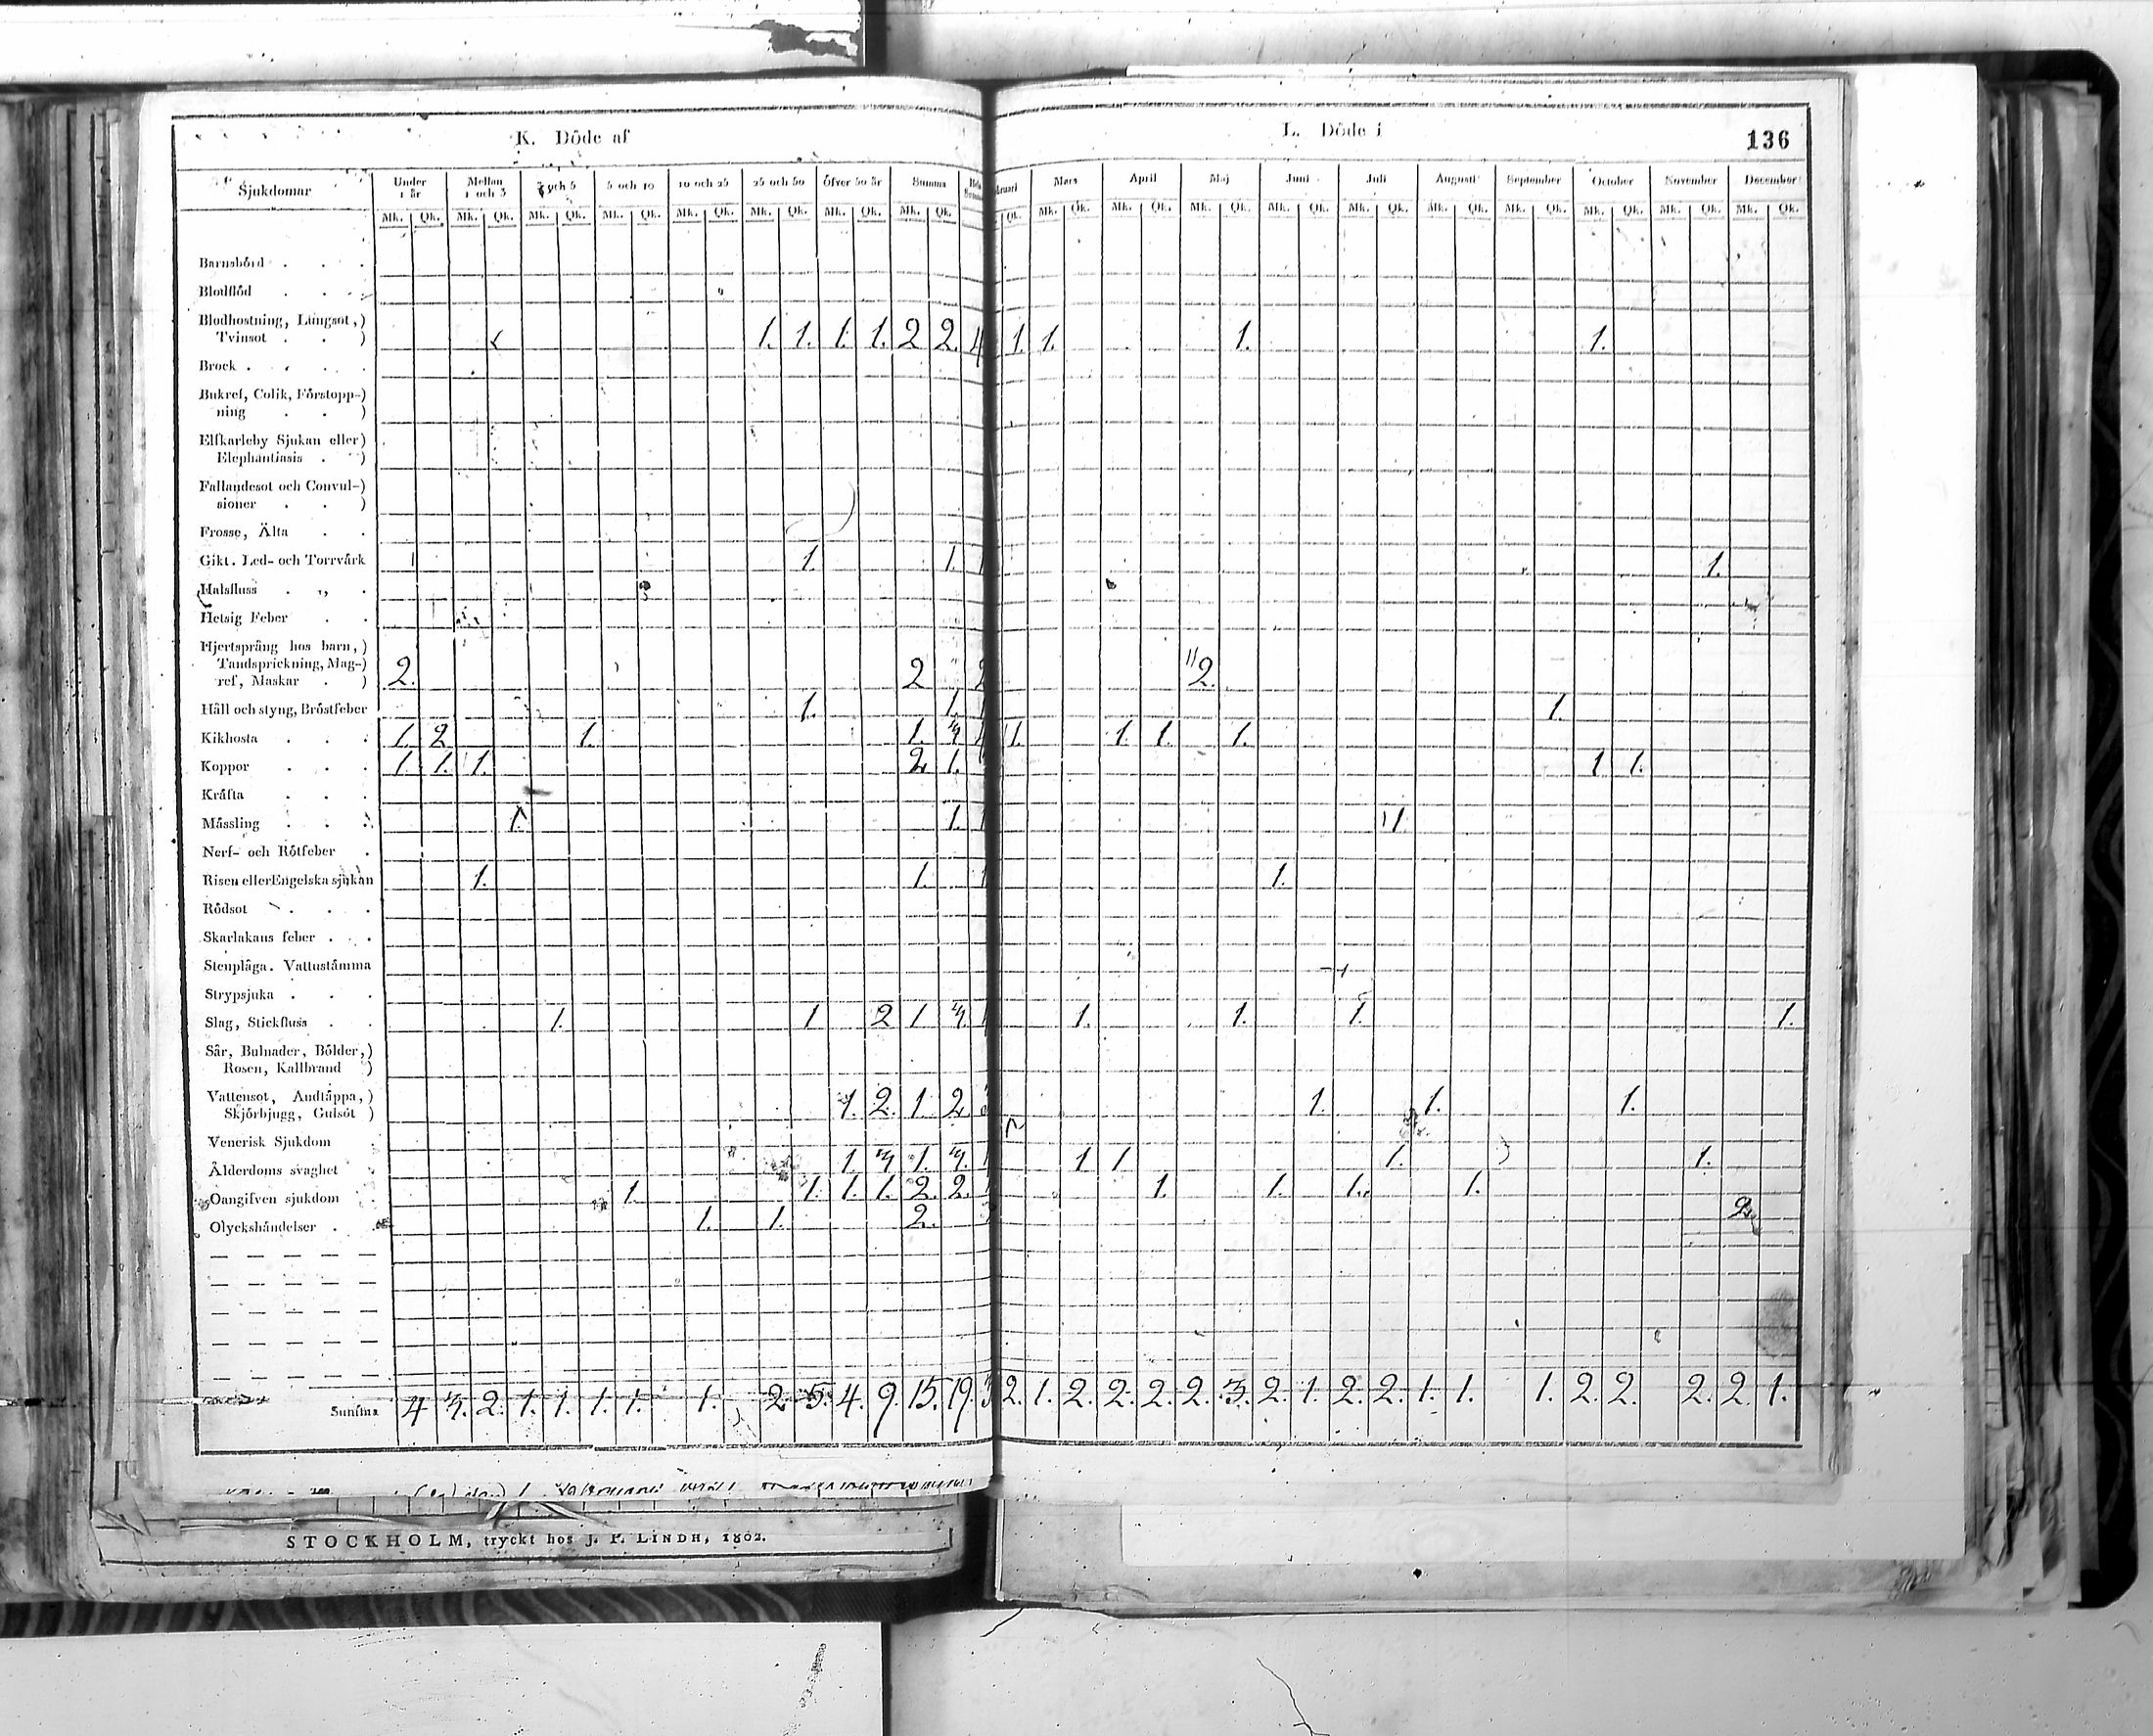 K. Döde af
L. Döde i
136
Sjukdomar Under 1 år Mellan 1 och 3 3 och 5 5 och 10 10 och 25 25 och 50 öfver 50 år Summa
Mars April Maj Juni Juli Augusti September October November December
Mk. Qk. Mk. Qk. Mk. Qk. Mk. Qk. Mk. Qk. Mk. Qk. Mk. Qk. Mk. Qk.
Qk. Mk. Qk. Mk. Qk. Mk. Qk. Mk. Qk. Mk. Qk. Mk. Qk. Mk. Qk. Mk. Qk. Mk. Qk. Mk. Qk.
Barnsbörd . . .
Blodflöd . . .
Blodhostning, Lungsot,)
Tvinsot . . ) 1. 1. 1. 1. 2 2. 4 1. 1. 1. 1.
Brock . . . .
Bukref, Colik, Förstopp-)
ning . . )
Elfkarleby Sjukan eller)
Elephantiasis . )
Fallandesot och Convul-)
sioner . . )
Frosse, Älta . .
Gikt. Led- och Torrvärk 1. 1. 1.
Halsfluss . . .
Hetsig Feber . .
Hjertsprång hos barn,)
Tandsprickning, Mag-)
ref, Maskar . ) 2. 2 2 2.
Håll och styng, Bröstfeber 1. 1. 1.
Kikhosta . . . 1. 2 1. 1. 3 1. 1. 1. 1.
Koppor . . . 1. 1. 1. 2 1. 1 1.
Kräfta . . .
Mässling . . . 1. 1. 1.
Nerf- och Rötfeber .
Risen eller Engelska sjukan 1. 1. 1.
Rödsot . . .
Skarlakans feber . .
Stenplåga. Vattustämma
Strypsjuka . . .
Slag, Stickfluss . . 1. 1 2 1 3. 1. 1. 1. 1.
Sår, Bulnader, Bölder,)
Rosen, Kallbrand )
Vattensot, Andtäppa,)
Skjörbjugg, Gulsot ) 1. 2. 1 2. 1. 1. 1.
Venerisk Sjukdom .
Ålderdoms svaghet . 1. 3 1. 3. 1 1 1. 1.
Oangifven sjukdom . 1. 1. 1. 1. 2. 2. 1. 1. 1. 1.
Olyckshändelser . . 1. 1. 2. 2.
Summa 4 3. 2. 1. 1. 1. 1. 1. 2. 5. 4. 9. 15. 19. 2. 1. 2. 2. 2. 2. 3. 2. 1. 2. 2. 1. 1. 1. 2. 2. 2. 2. 1.
STOCKHOLM, tryckt hos J. P. LINDH, 1802.